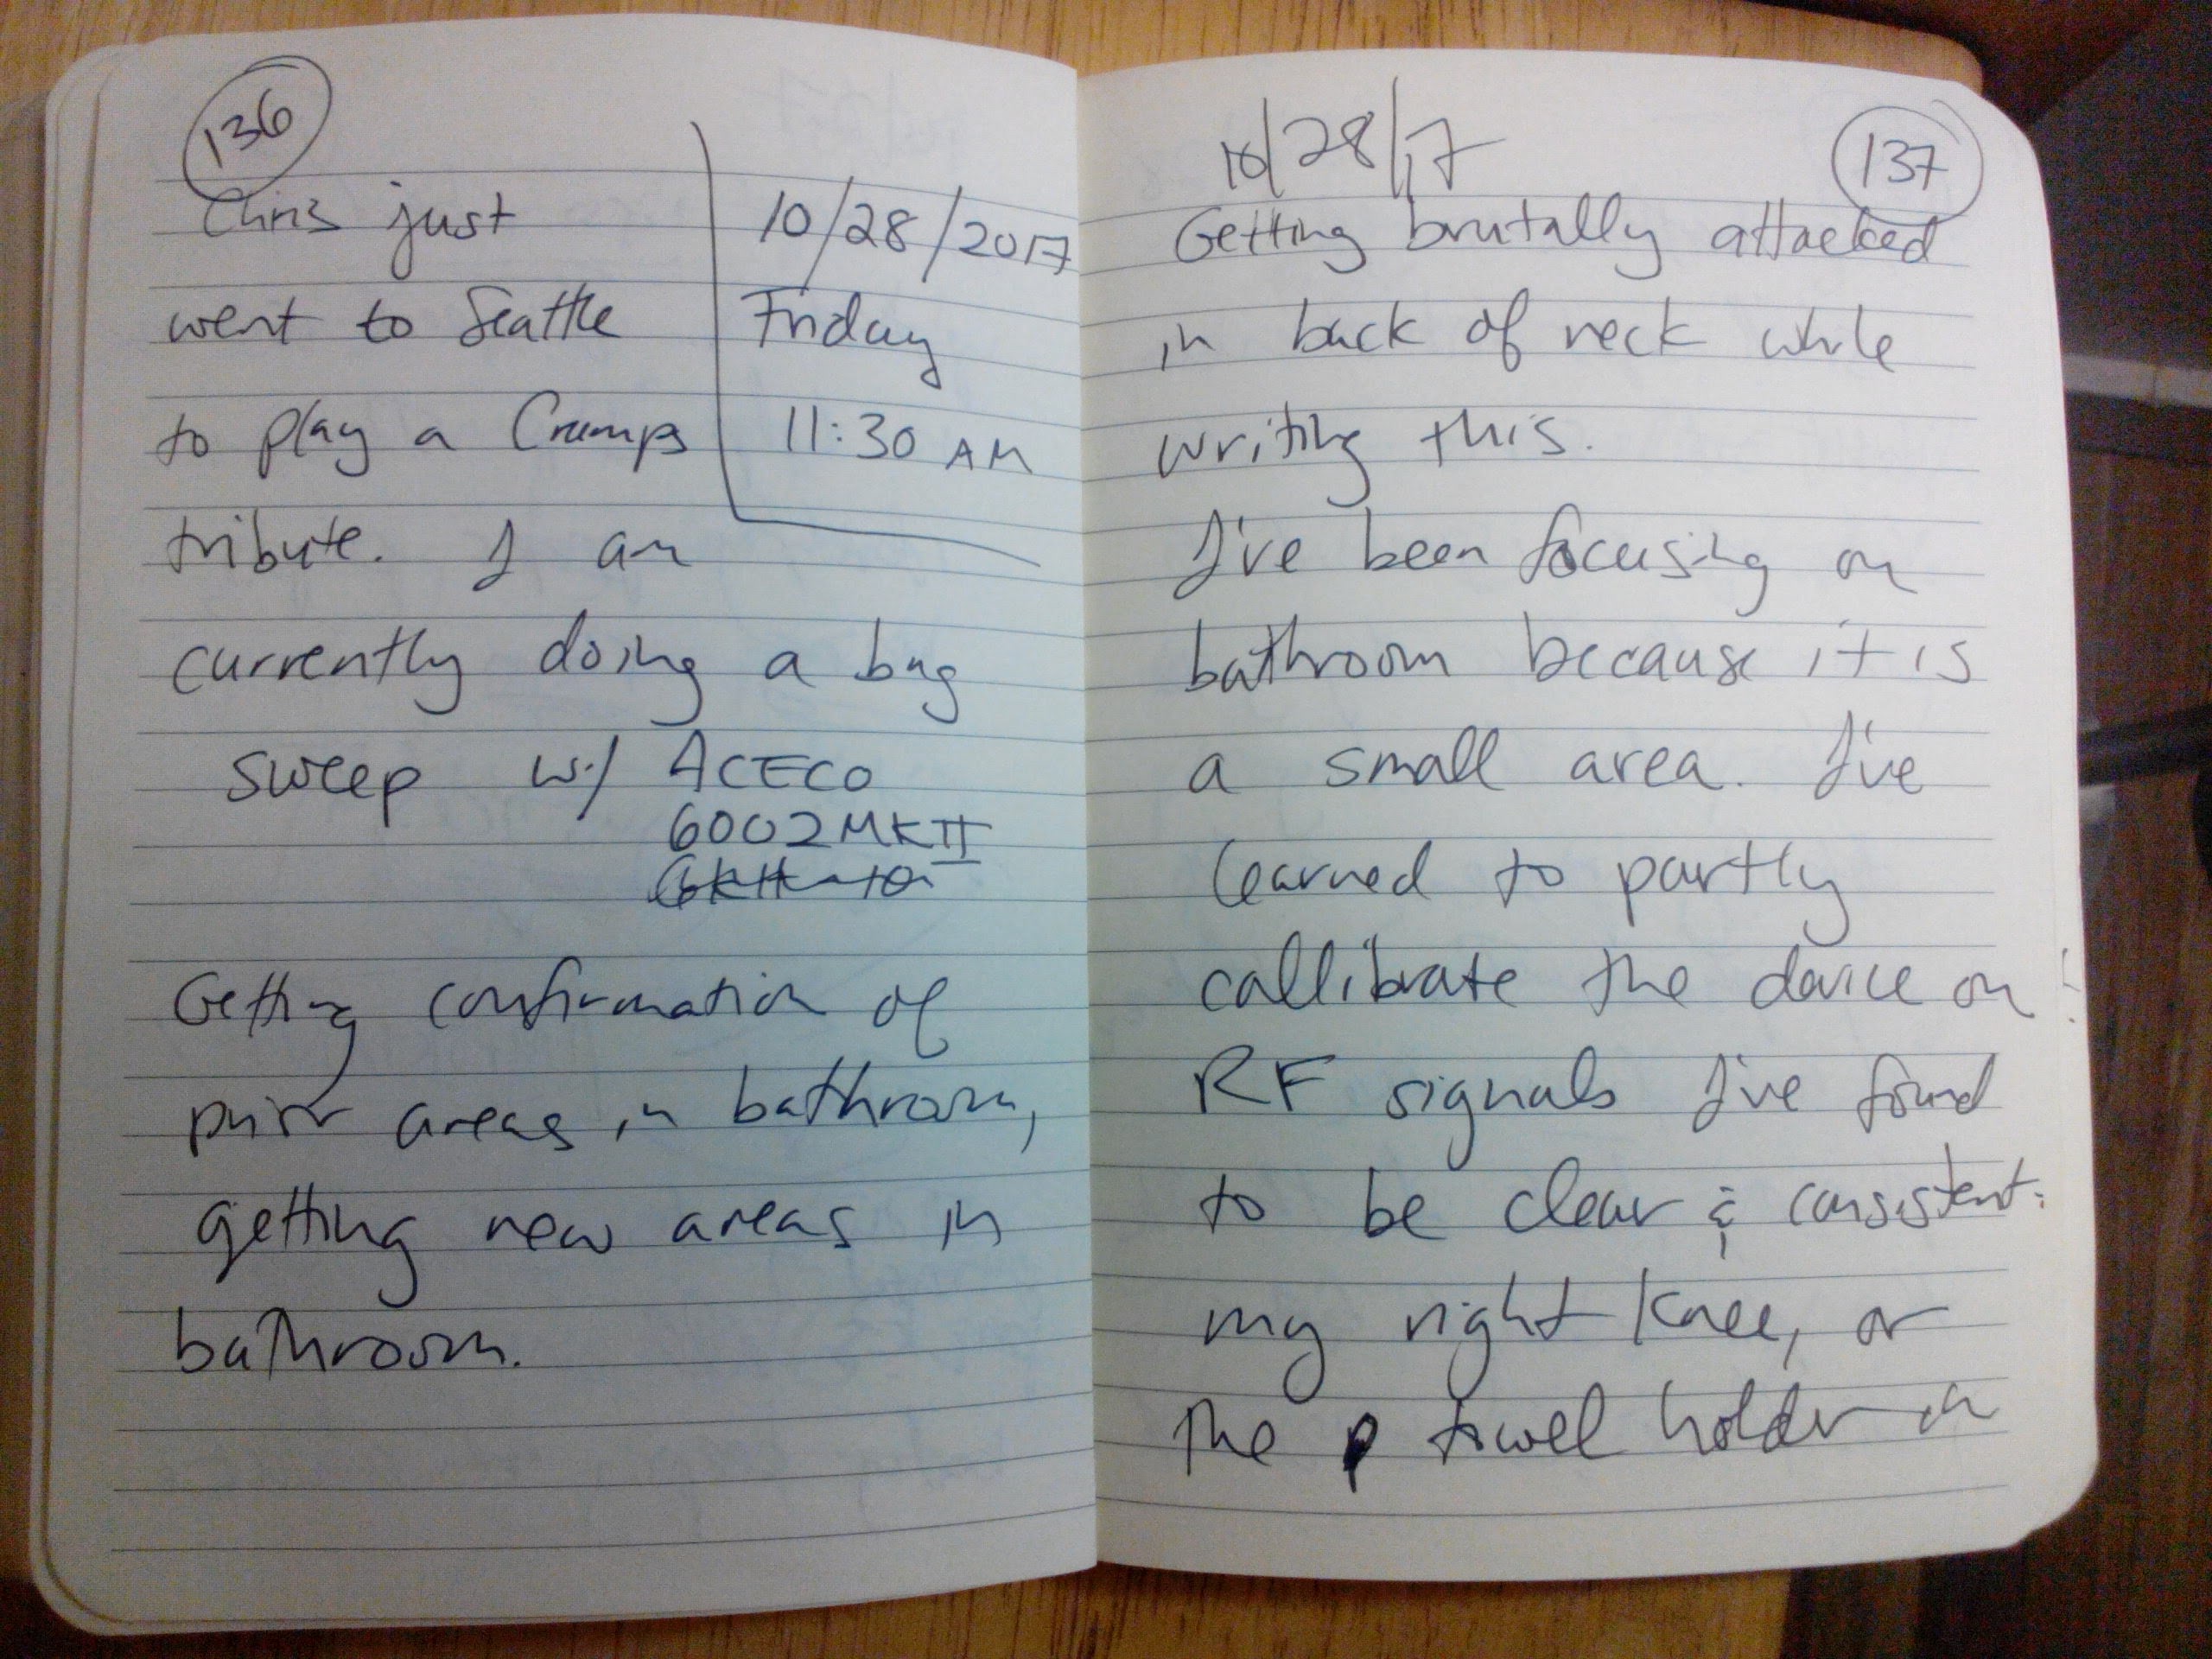 136
10/28/2017
Friday
11:30 AM
Chris just
went to Seattle
to play a Cramps
tribute. I am
currently doing a bug
sweep w/ ACECO
6002MKII
Getting confirmation of
prior areas in bathroom,
getting new areas in
bathroom.
10/28/17
137
Getting brutally attacked
in back of neck while
writing this.
I've been focusing on
bathroom because it is
a small area. I've
learned to partly
callibrate the device on
RF signals I've found
to be clear & consistent:
my right knee, or
the towel holder in